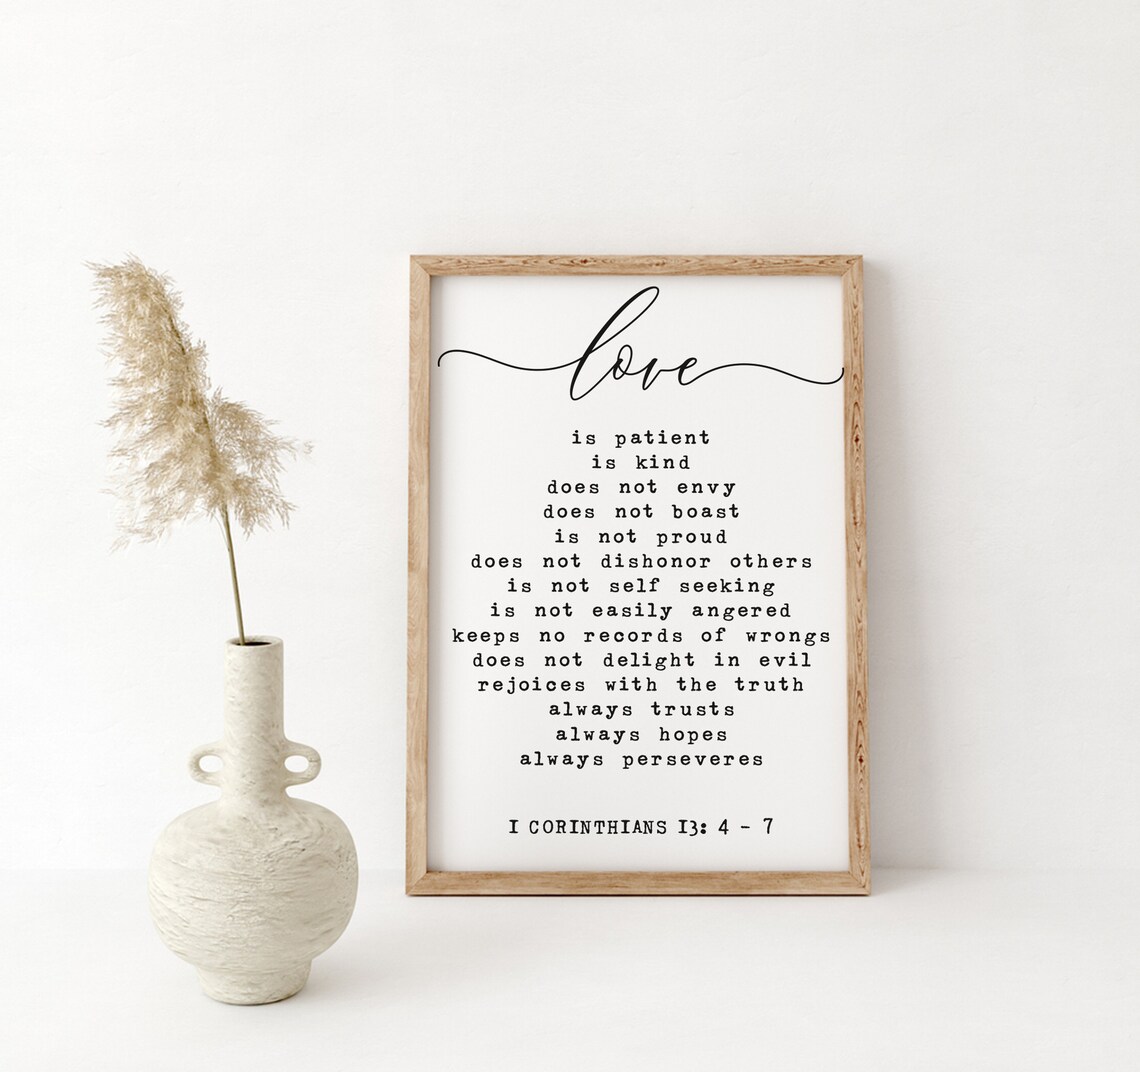 love
is patient
is kind
does not envy
does not boast
is not proud
does not dishonor others
is not self seeking
is not easily angered
keeps no records of wrongs
does not delight in evil
rejoices with the truth
always trusts
always hopes
always perseveres
1 CORINTHIANS 13: 4 - 7